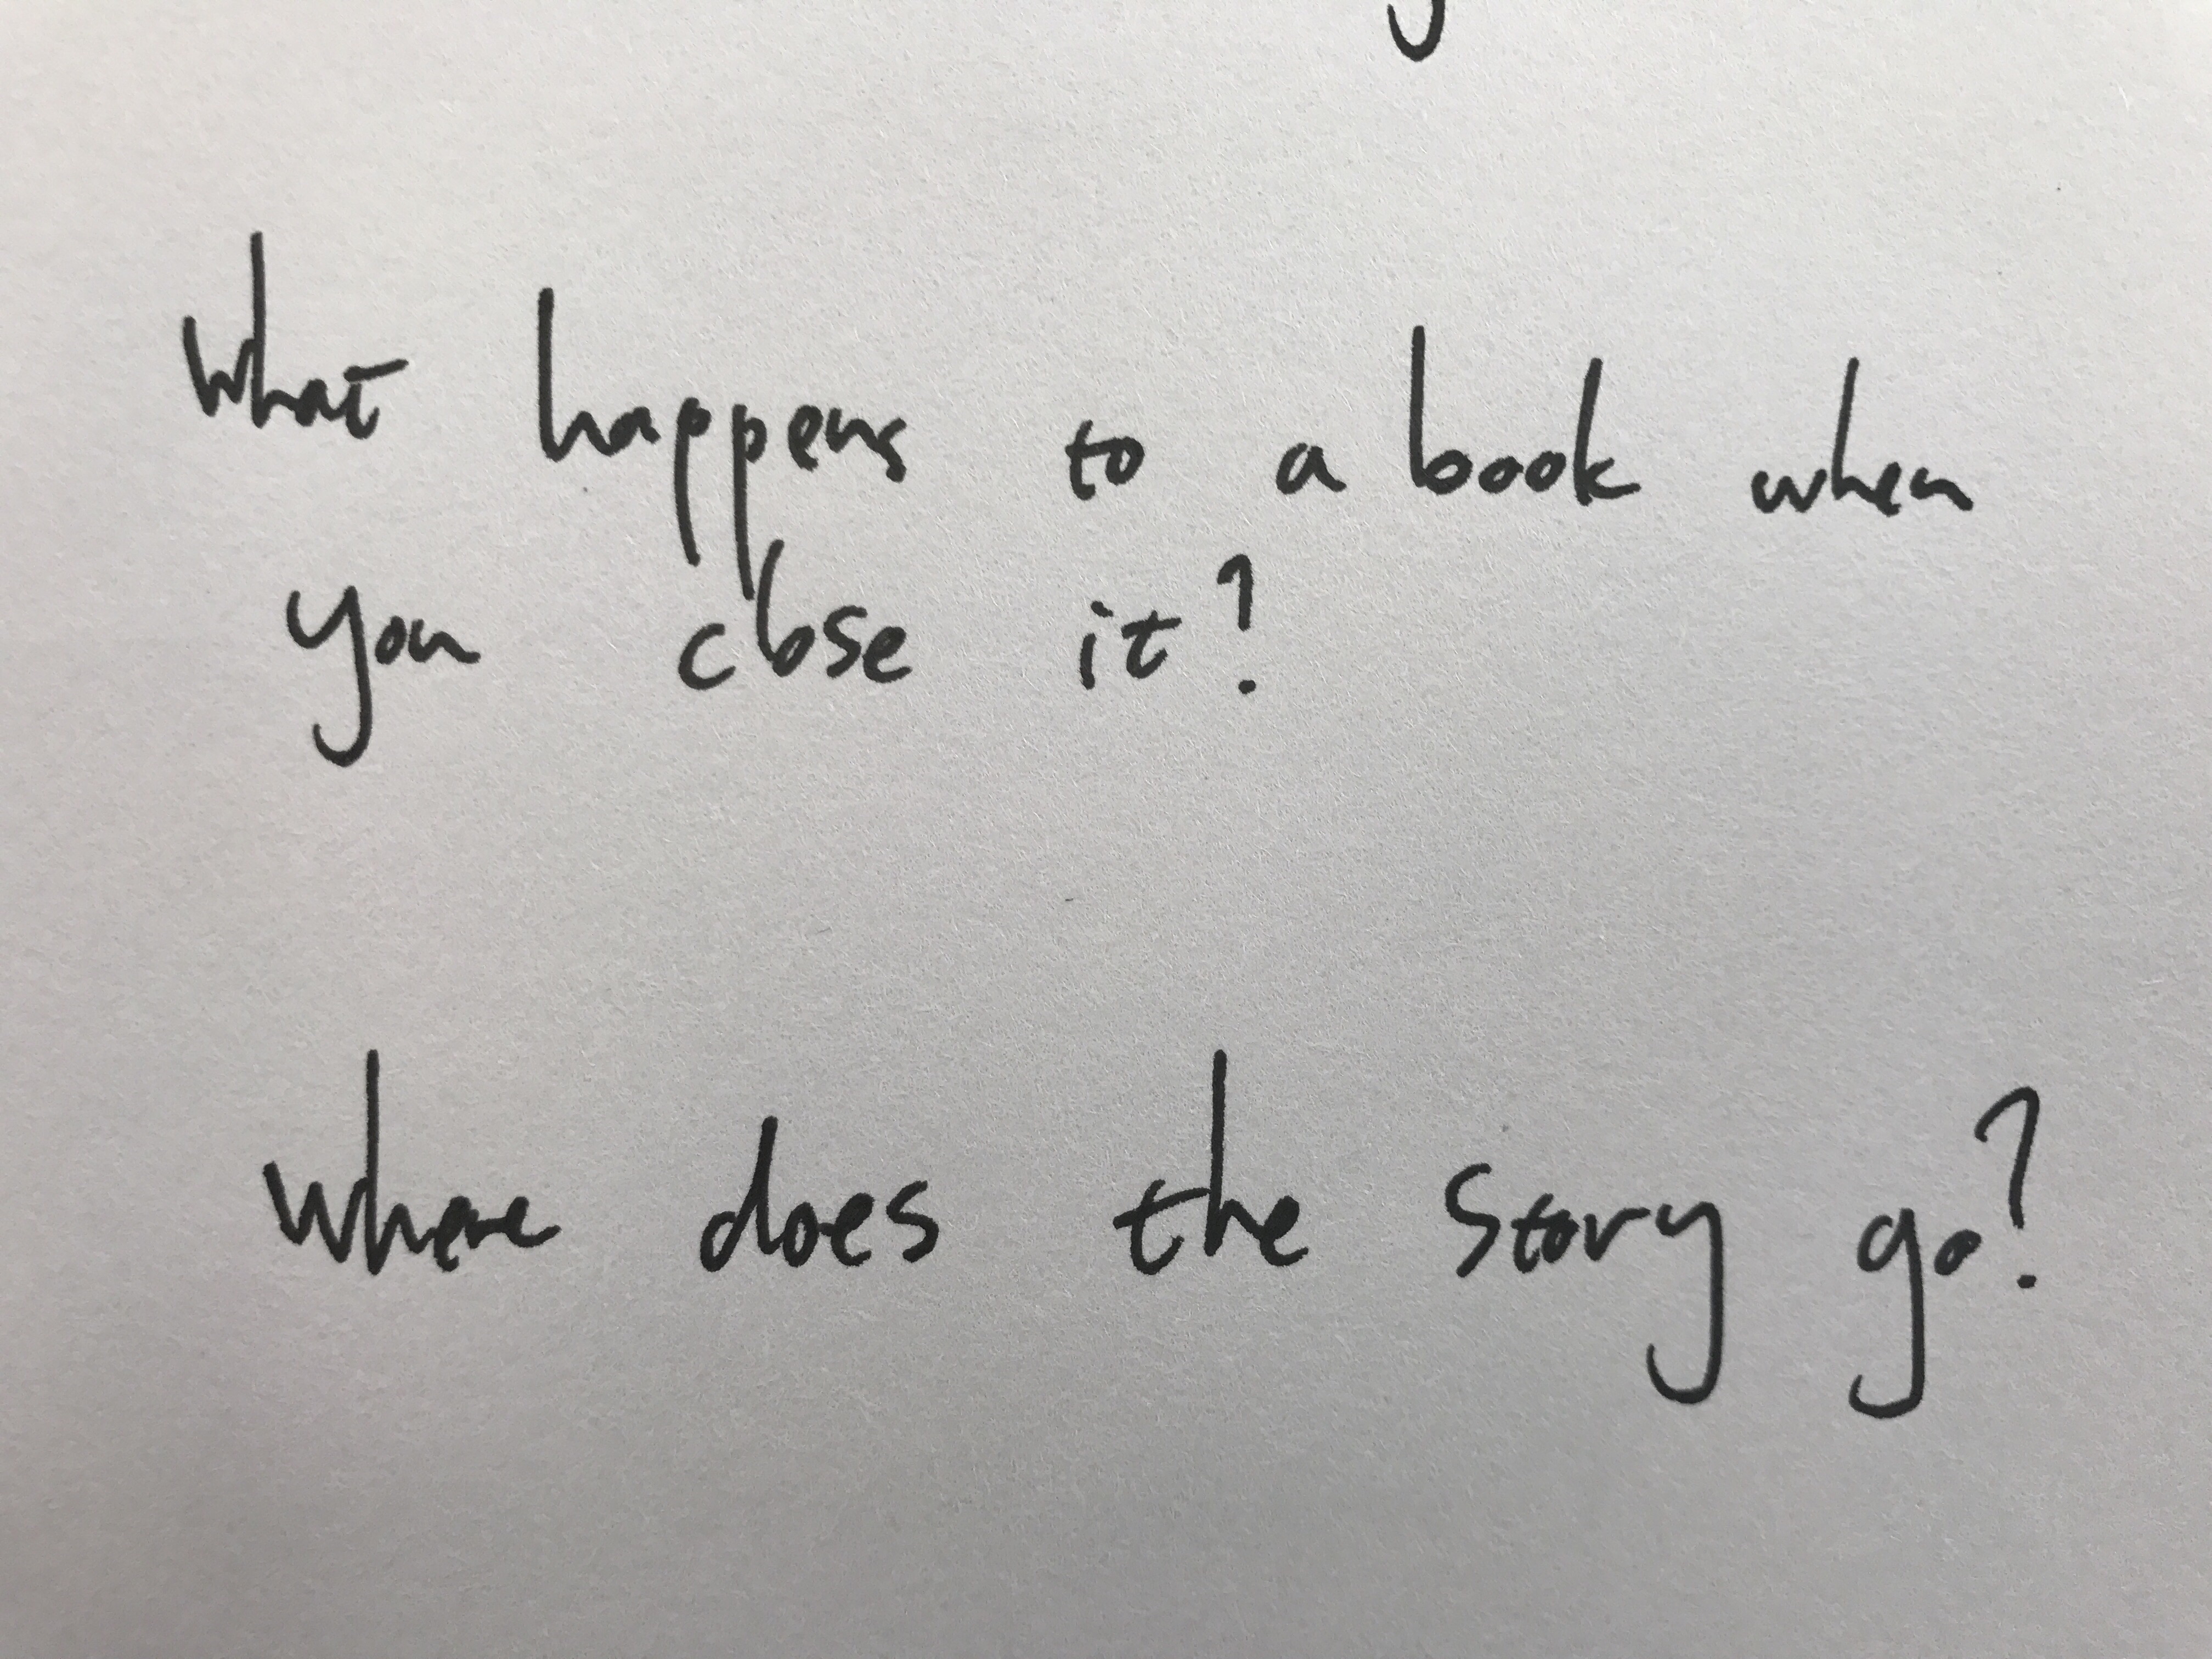 What happens to a book when
you close it?
Where does the story go?